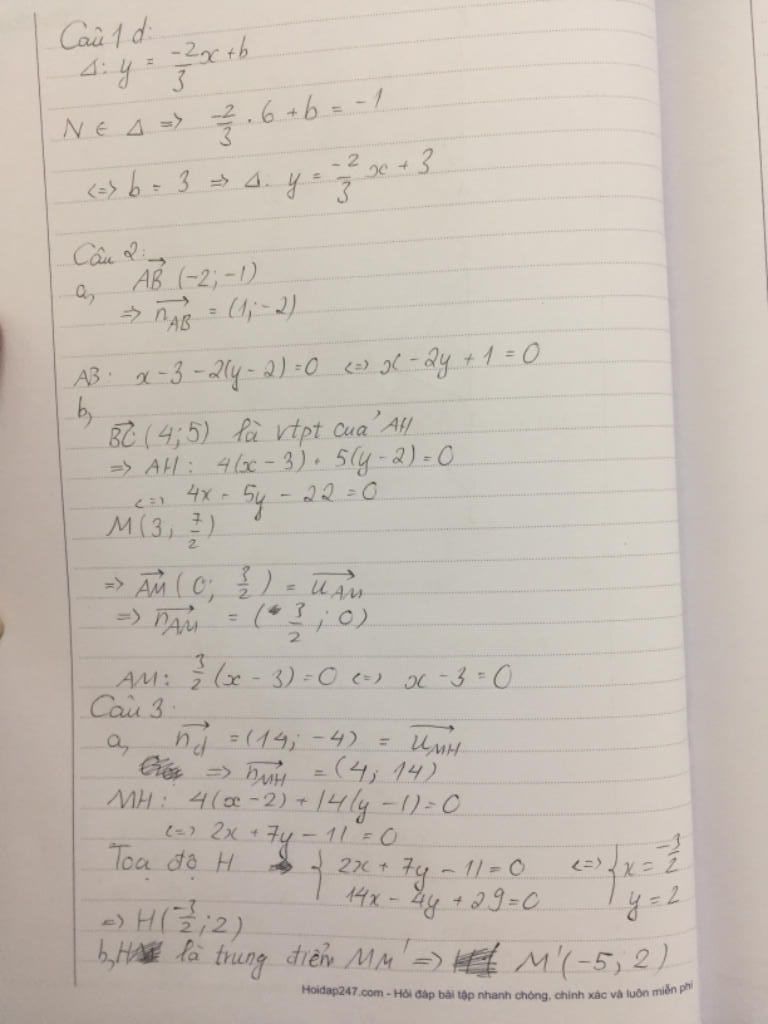 Câu 1 d:
Δ: y = -2/3 x + b
N ∈ Δ => -2/3 . 6 + b = -1
<=> b = 3 => Δ: y = -2/3 x + 3
Câu 2:
a, AB→ (-2; -1)
=> n_AB→ = (1; -2)
AB: x - 3 - 2(y - 2) = 0 <=> x - 2y + 1 = 0
b,
BC→ (4; 5) là vtpt của AH
=> AH: 4(x - 3) + 5(y - 2) = 0
<=> 4x - 5y - 22 = 0
M(3, 7/2)
=> AM→ (0; 3/2) = u_AM→
=> n_AM→ = (3/2; 0)
AM: 3/2 (x - 3) = 0 <=> x - 3 = 0
Câu 3:
a, n_d→ = (14; -4) = u_MH→
=> n_MH→ = (4; 14)
MH: 4(x - 2) + 14(y - 1) = 0
<=> 2x + 7y - 11 = 0
Toạ độ H => { 2x + 7y - 11 = 0 <=> { x = -3/2
14x - 4y + 29 = 0 y = 2
=> H(-3/2; 2)
b, H là trung điểm MM' => M'(-5; 2)
Hoidap247.com - Hỏi đáp bài tập nhanh chóng, chính xác và luôn miễn phí